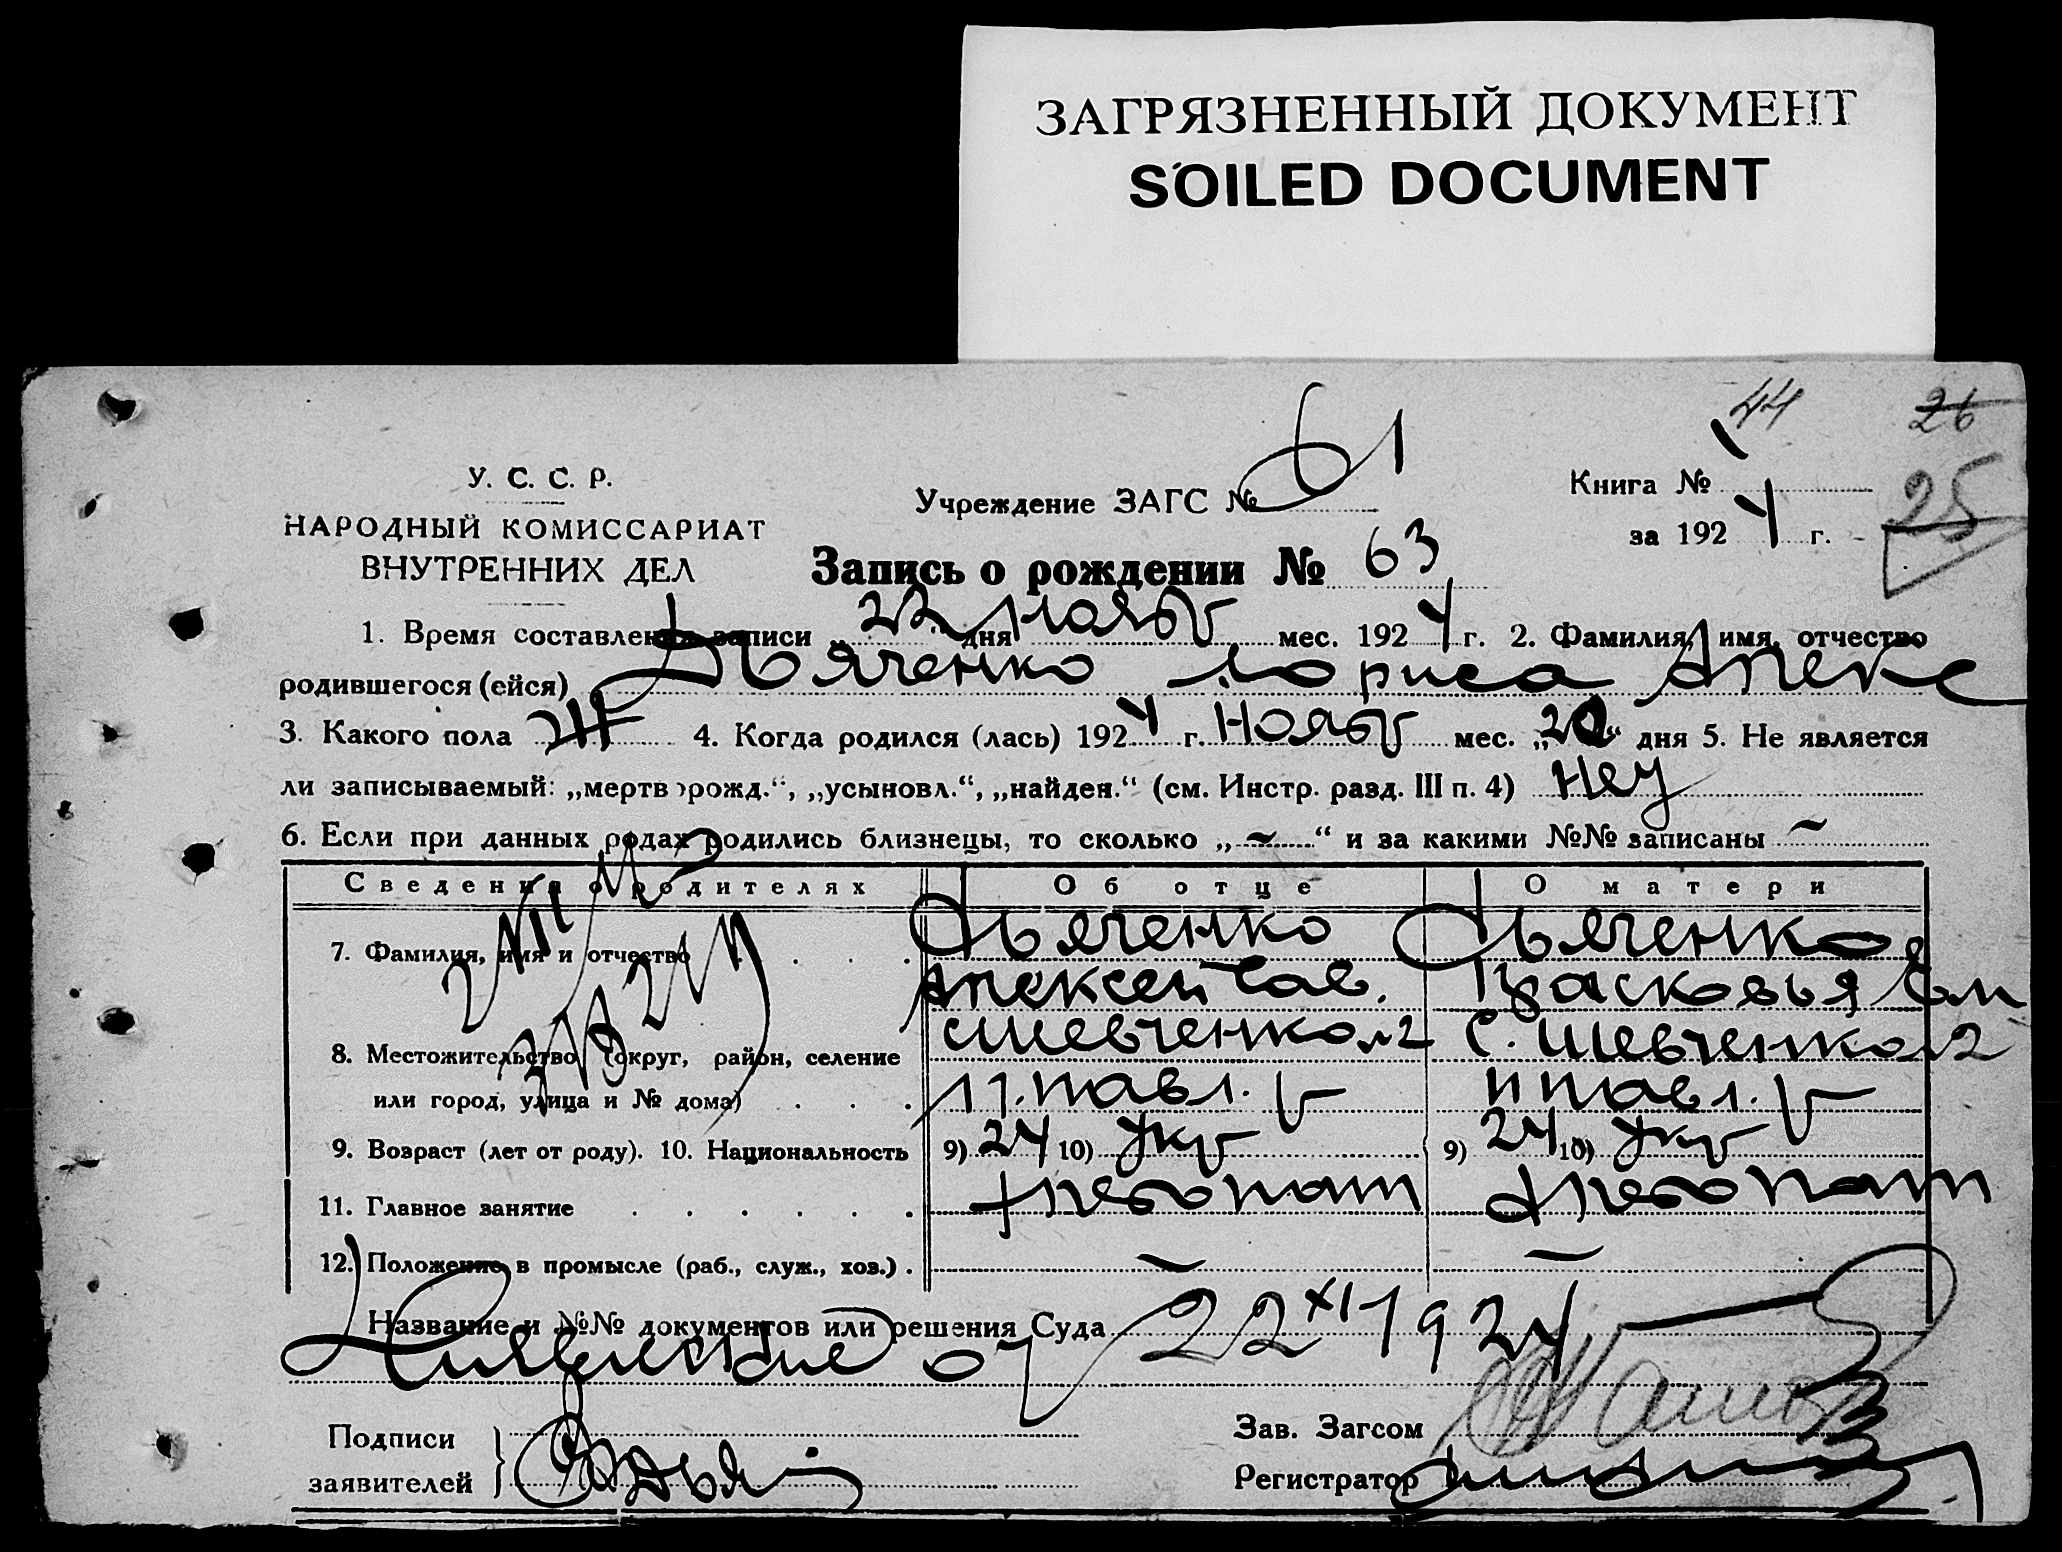 ЗАГРЯЗНЕННЫЙ ДОКУМЕНТ
SOILED DOCUMENT
44 26
У. С. С. Р.
НАРОДНЫЙ КОМИССАРИАТ
ВНУТРЕННИХ ДЕЛ
Учреждение ЗАГС № 61
Книга №
за 192 4 г.
25
Запись о рождении № 63
1. Время составления записи „22“ дня нояб мес. 192 4 г. 2. Фамилия, имя, отчество
родившегося (ейся) Дьяченко Лориса Алекс
3. Какого пола Ж 4. Когда родился (лась) 192 4 г. нояб мес. „20“ дня 5. Не является
ли записываемый: „мертворожд.“, „усыновл.“, „найден.“ (см. Инстр. разд. III п. 4) нет
6. Если при данных родах родились близнецы, то сколько „~“ и за какими №№ записаны ~
Сведения о родителях Об отце О матери
7. Фамилия, имя и отчество Дьяченко Дьяченко
Алексей Сав. Прасковья Ем
8. Местожительство (округ, район, селение Шевченко С. Шевченко
или город, улица и № дома) павл. павл.
9. Возраст (лет от роду). 10. Национальность 9) 24 10) Укр 9) 24 10) Укр
11. Главное занятие хлебопаш хлебопаш
12. Положение в промысле (раб., служ., хоз.) — —
Название и №№ документов или решения Суда 22 XI 1924
от
Подписи
заявителей
Зав. Загсом
Регистратор